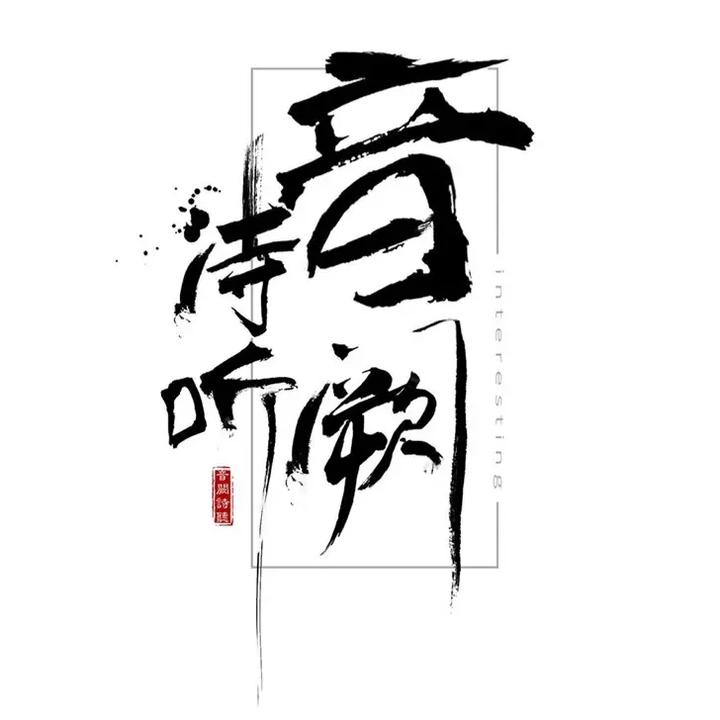 音阙
诗听
interesting
音闕詩聽